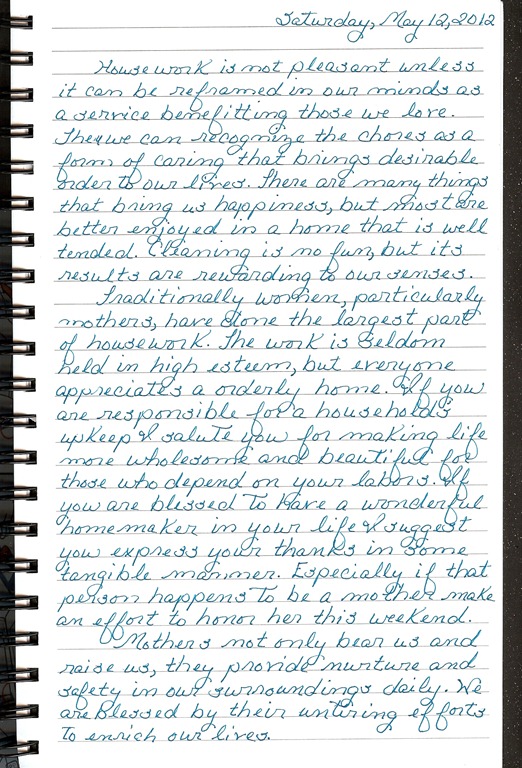 Saturday, May 12, 2012
Housework is not pleasant unless
it can be reframed in our minds as
a service benefitting those we love.
Then we can recognize the chores as a
form of caring that brings desirable
order to our lives. There are many things
that bring us happiness, but most are
better enjoyed in a home that is well
tended. Cleaning is no fun, but its
results are rewarding to our senses.
Traditionally women, particularly
mothers, have done the largest part
of housework. The work is seldom
held in high esteem, but everyone
appreciates a orderly home. If you
are responsible for a household's
upkeep I salute you for making life
more wholesome and beautiful for
those who depend on your labors. If
you are blessed to have a wonderful
homemaker in your life I suggest
you express your thanks in some
tangible manner. Especially if that
person happens to be a mother make
an effort to honor her this weekend.
Mothers not only bear us and
raise us, they provide nurture and
safety in our surroundings daily. We
are blessed by their untiring efforts
to enrich our lives.